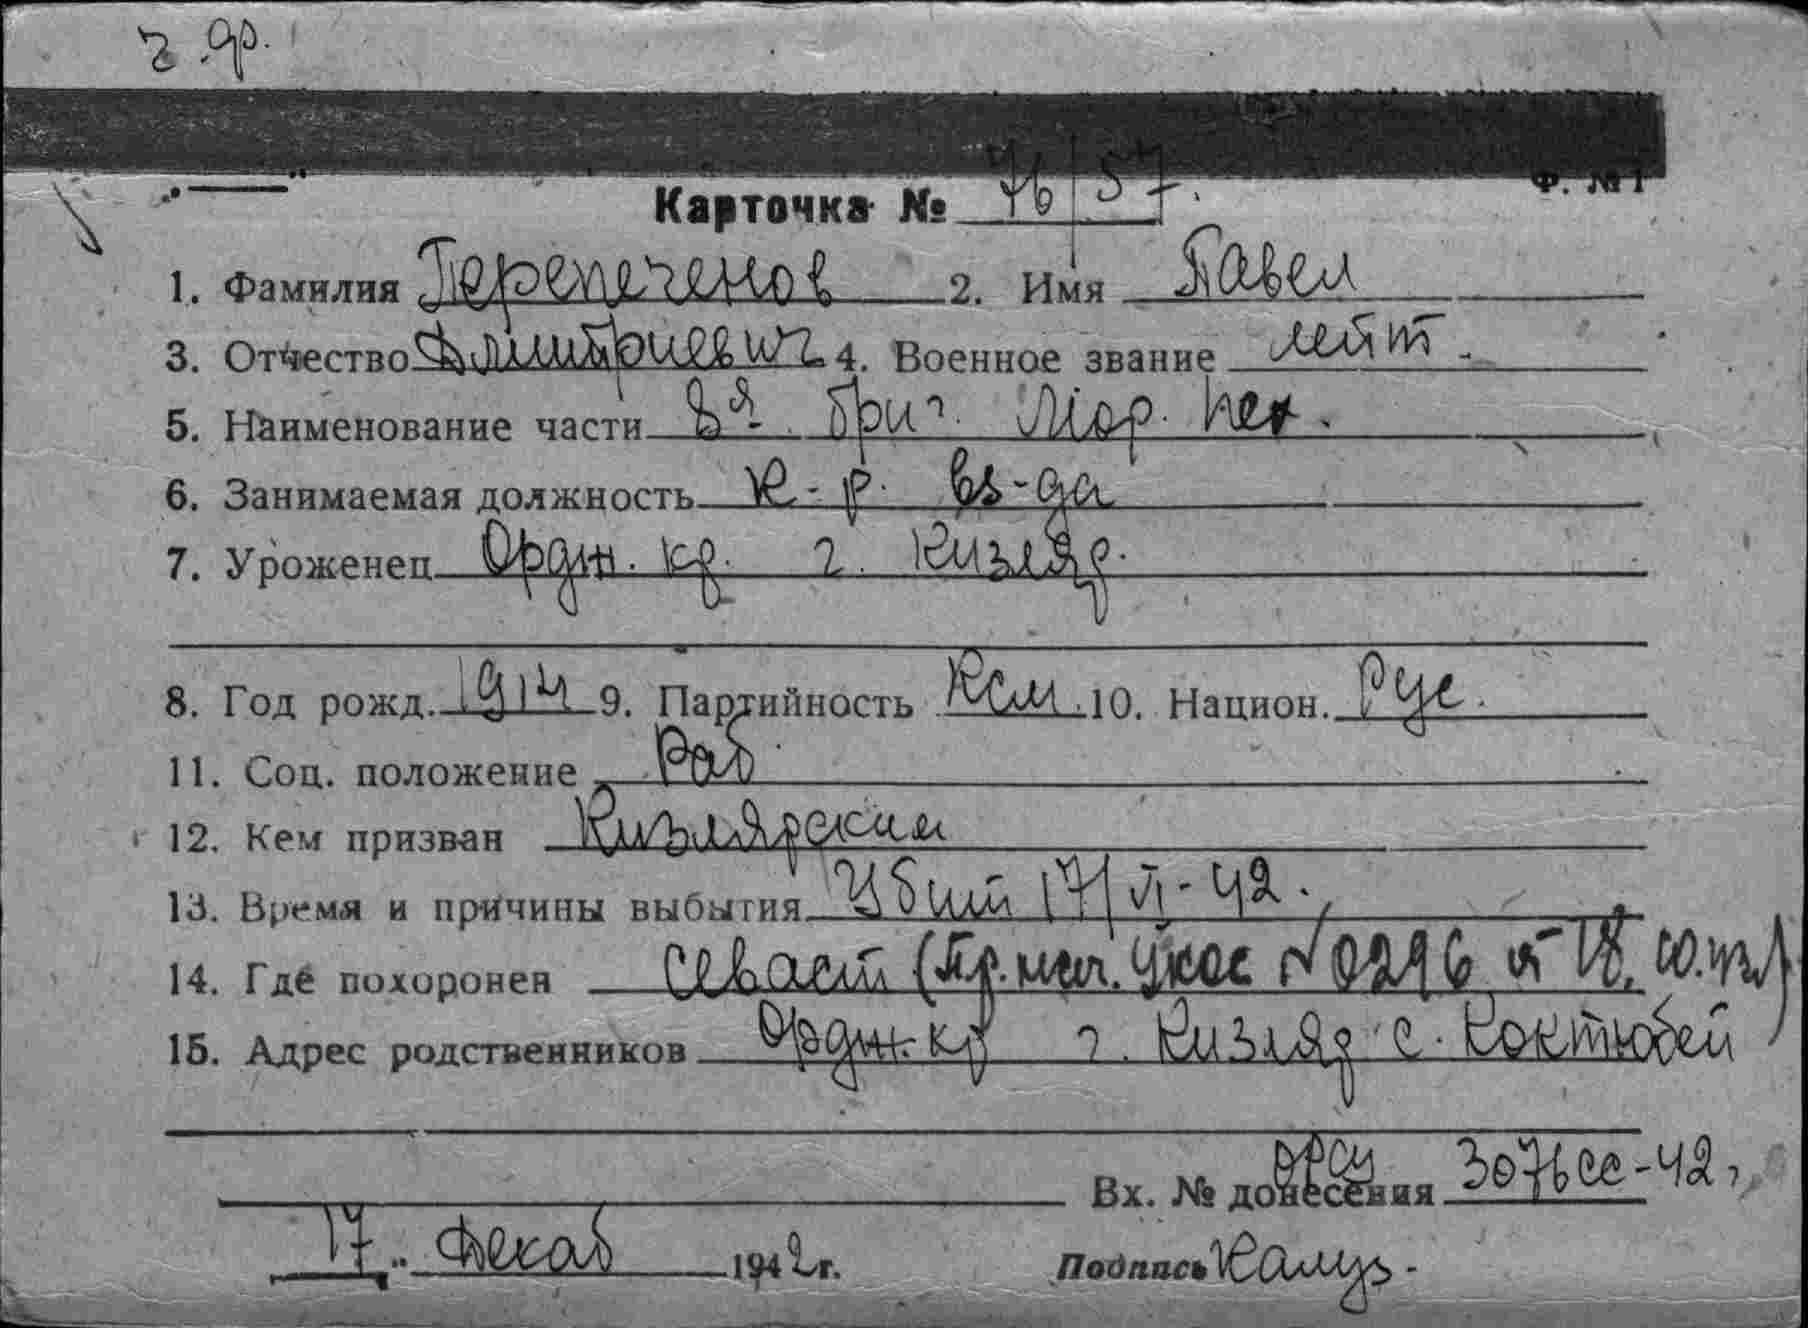 Ф. № 1
Карточка № 76/57.
1. Фамилия Перепеченов 2. Имя Павел
3. Отчество Дмитриевич 4. Военное звание лейт.
5. Наименование части 8я Бриг. Мор. пех.
6. Занимаемая должность к-р. вз-да
7. Уроженец Ордж. кр. г. Кизляр.
8. Год рожд. 1914 9. Партийность Ксм. 10. Национ. Рус.
11. Соц. положение Раб.
12. Кем призван Кизлярским
13. Время и причины выбытия Убит 17/VI-42.
14. Где похоронен Севаст (Пр. 0296
15. Адрес родственников Ордж. кр г. Кизляр с. Коктюбей
Вх. № донесения 3076сс-42г
17 Декаб 1942 г. Подпись